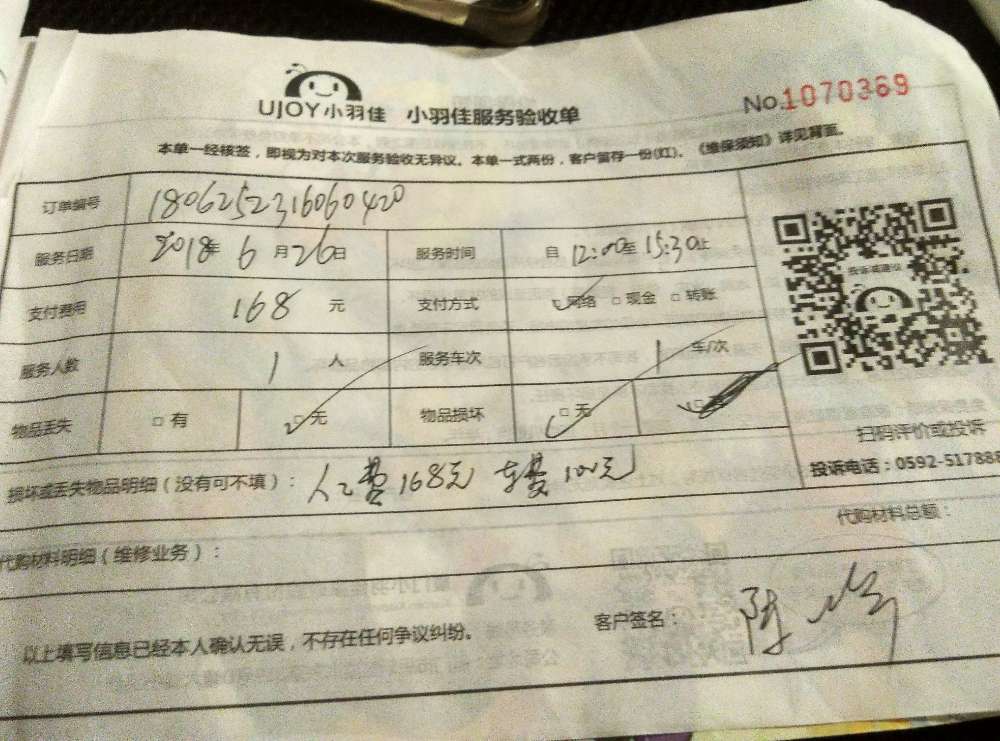 UJOY小羽佳 小羽佳服务验收单 No.1070369
本单一经核签，即视为对本次服务验收无异议。本单一式两份，客户留存一份(红)。《维保须知》详见背面。
订单编号 1806252316060420
服务日期 2018年6月26日 服务时间 自12:00至15:30止
支付费用 168元 支付方式 ☑网络 □现金 □转账
服务人数 1人 服务车次 1车/次
物品丢失 □有 ☑无 物品损坏 ☑无
投诉或建议
扫码评价或投诉
投诉电话：0592-517888
损坏或丢失物品明细（没有可不填）：人工费168元 车费100元
代购材料总额：
代购材料明细（维修业务）：
以上填写信息已经本人确认无误，不存在任何争议纠纷。 客户签名：陈